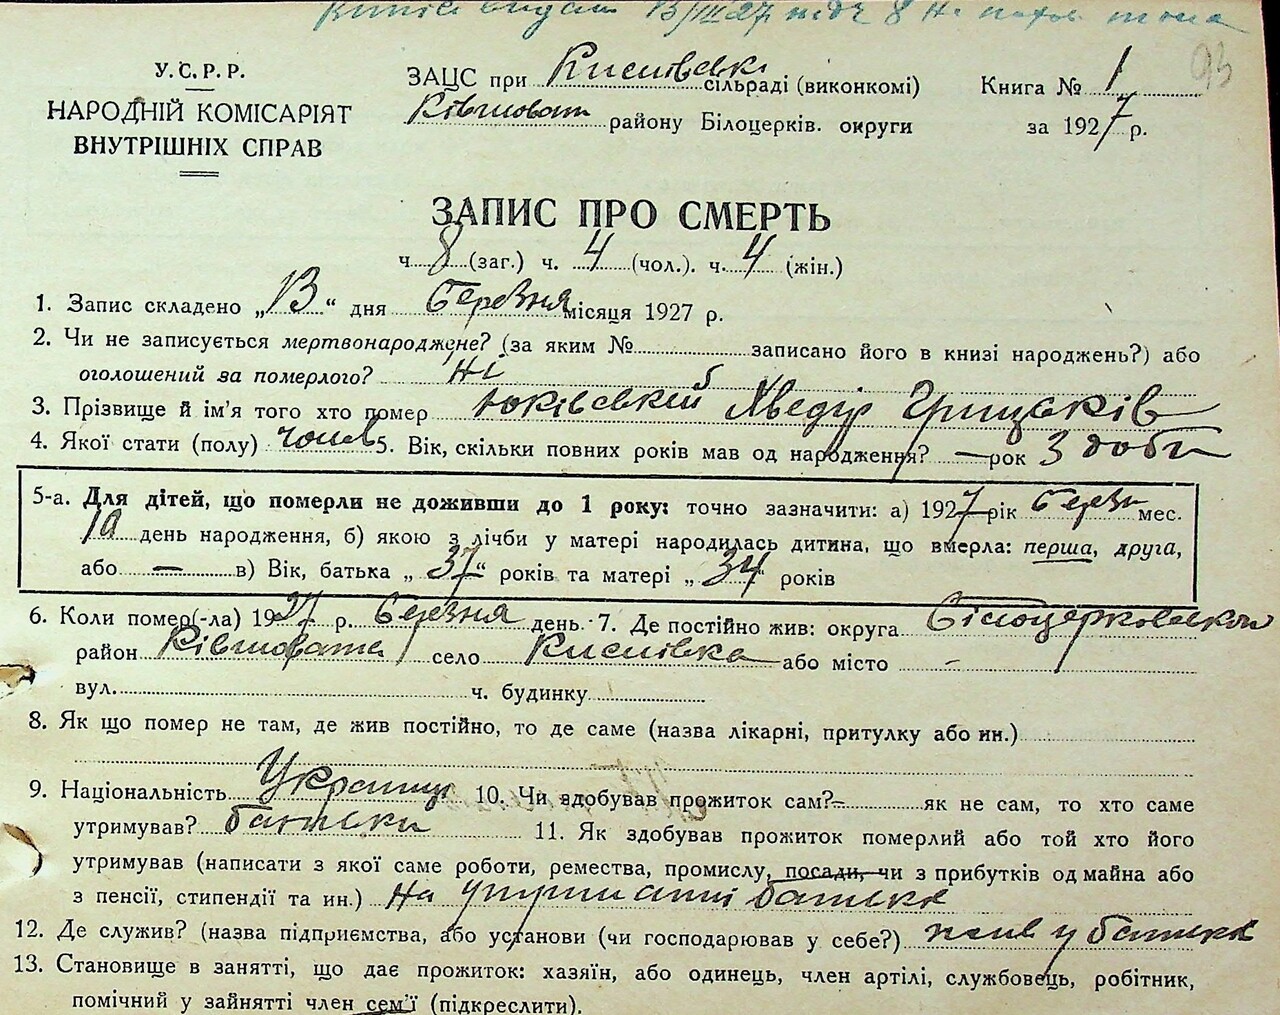 Витяг видан 13/III 27 під ч 8 на похов тіла
У.С.Р.Р.
НАРОДНІЙ КОМІСАРІЯТ
ВНУТРІШНІХ СПРАВ
ЗАЦС при Кислівські сільраді (виконкомі)
Ківшоват району Білоцерків. округи
Книга № 1
за 1927 р.
93
ЗАПИС ПРО СМЕРТЬ
ч. 8 (заг.) ч. 4 (чол.). ч. 4 (жін.)
1. Запис складено „13“ дня Березня місяця 1927 р.
2. Чи не записується мертвонароджене? (за яким № записано його в книзі народжень?) або
оголошений за померлого? Ні
3. Прізвище й ім'я того хто помер Юківський Хведір Грицьків
4. Якої стати (полу) чолов 5. Вік, скільки повних років мав од народження? — рок 3 доби
5-а. Для дітей, що померли не доживши до 1 року: точно зазначити: а) 1927 рік Березн мес.
10 день народження, б) якою з лічби у матері народилась дитина, що вмерла: перша, друга,
або — в) Вік, батька „37“ років та матері „34“ років
6. Коли помер(-ла) 1927 р. Березня день 7. Де постійно жив: округа Білоцерковської
район Ківшовата село Кислівка або місто -
вул. ч. будинку
8. Як що помер не там, де жив постійно, то де саме (назва лікарні, притулку або ин.)
9. Національність Українц 10. Чи здобував прожиток сам? — як не сам, то хто саме
утримував? батьки 11. Як здобував прожиток померлий або той хто його
утримував (написати з якої саме роботи, ремества, промислу, посади, чи з прибутків од майна або
з пенсії, стипендії та ин.) На утриманні батьків
12. Де служив? (назва підприємства, або установи (чи господарював у себе?) жив у батьків
13. Становище в занятті, що дає прожиток: хазяїн, або одинець, член артілі, службовець, робітник,
помічний у зайнятті член сем'ї (підкреслити).